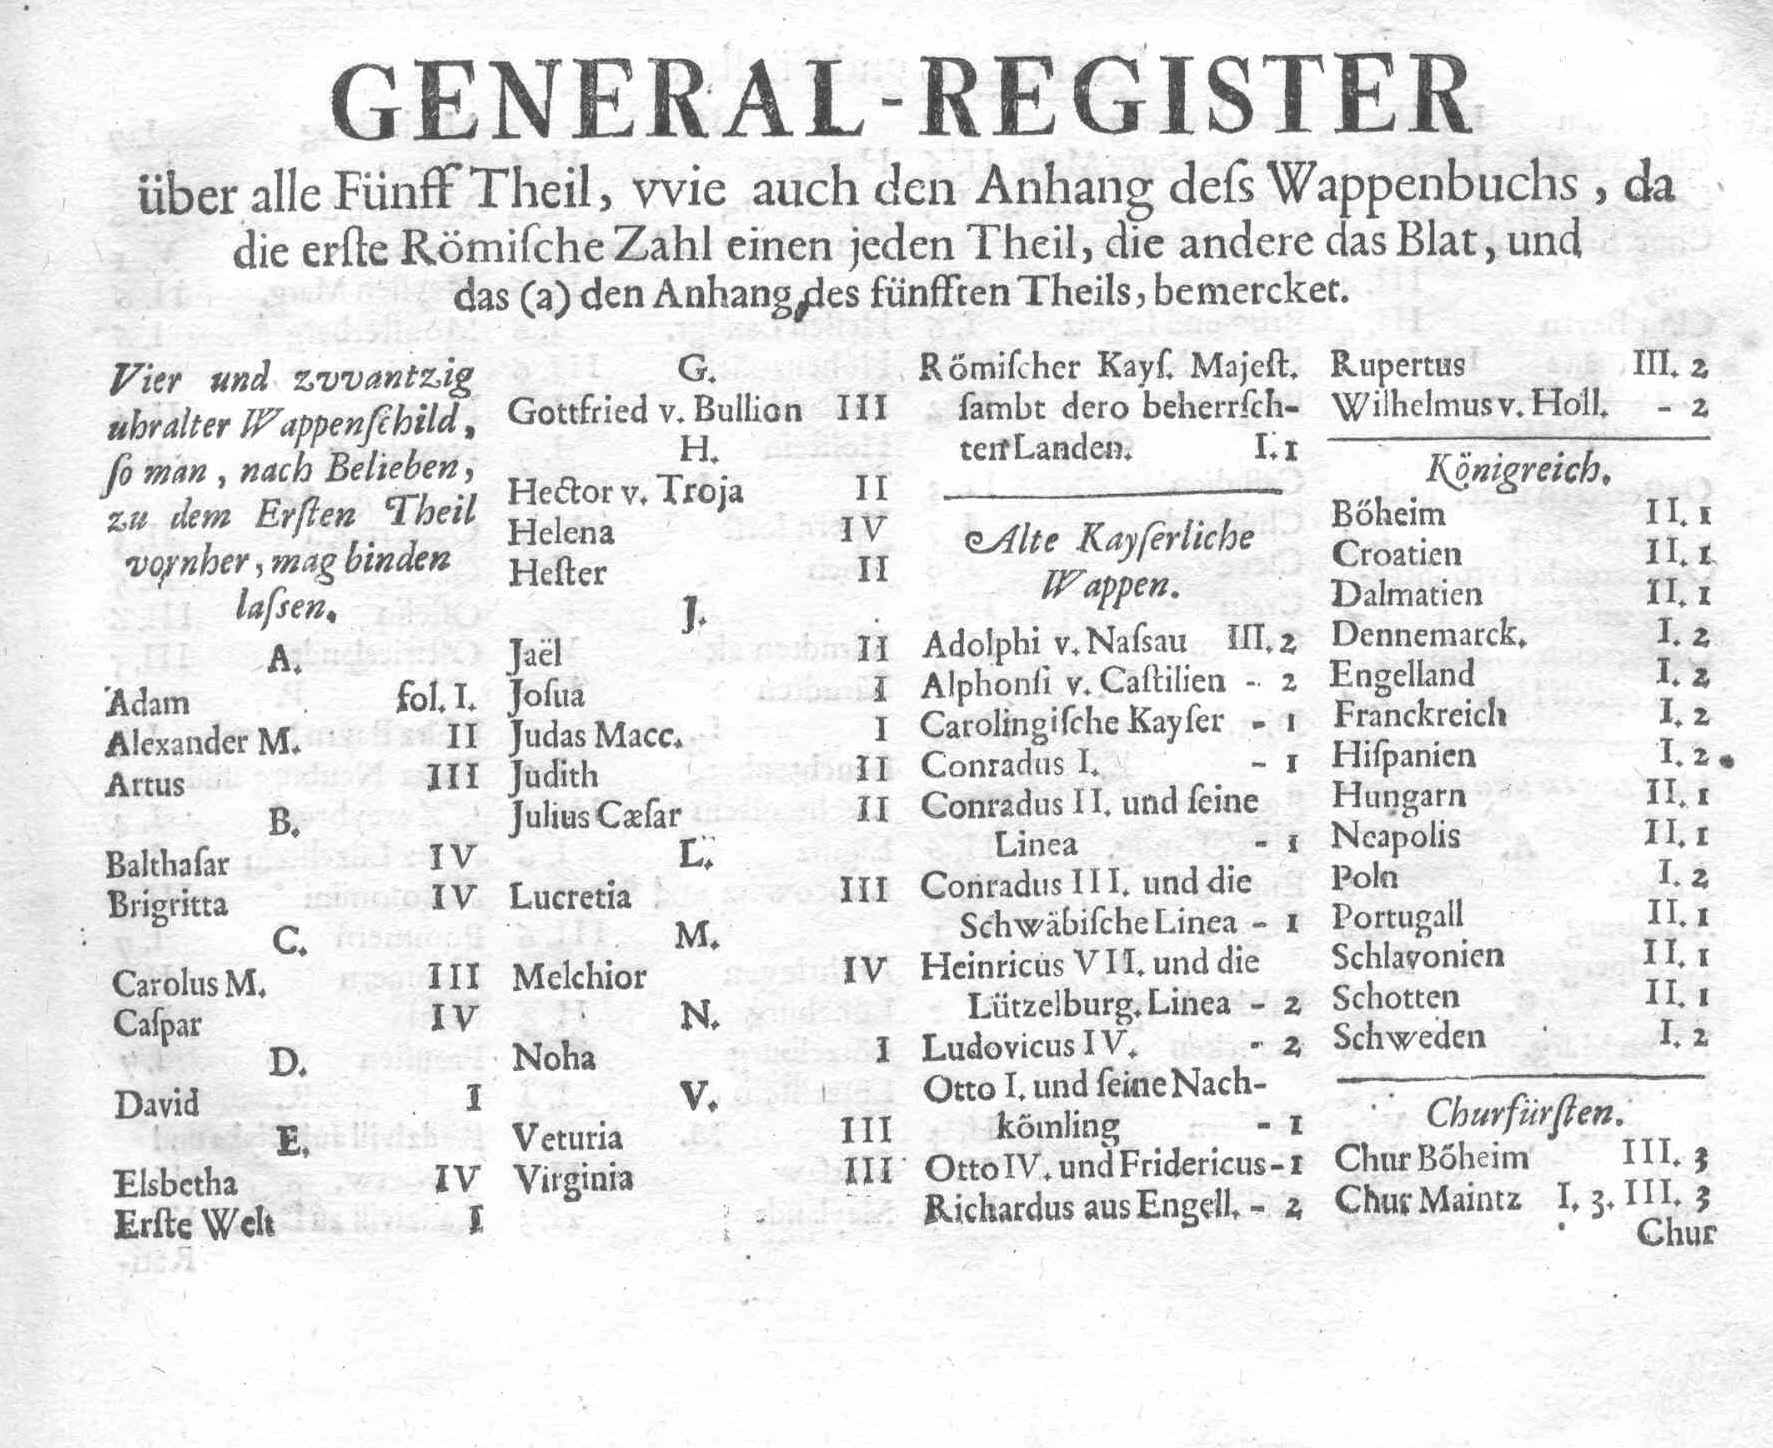 GENERAL-REGISTER
über alle Fünff Theil, vvie auch den Anhang deſs Wappenbuchs, da
die erſte Römiſche Zahl einen jeden Theil, die andere das Blat, und
das (a) den Anhang des fünfften Theils, bemercket.
Vier und zvvantzig
uhralter Wappenſchild,
ſo man, nach Belieben,
zu dem Erſten Theil
vornher, mag binden
laſsen.
A.
Adam fol. I.
Alexander M. II
Artus III
B.
Balthaſar IV
Brigritta IV
C.
Carolus M. III
Caſpar IV
D.
David I
E.
Elsbetha IV
Erſte Welt I
G.
Gottfried v. Bullion III
H.
Hector v. Troja II
Helena IV
Heſter II
J.
Jaël II
Joſua I
Judas Macc. I
Judith II
Julius Cæſar II
L.
Lucretia III
M.
Melchior IV
N.
Noha I
V.
Veturia III
Virginia III
Römiſcher Kayſ. Majeſt.
ſambt dero beherrſch-
ten Landen. I. 1
Alte Kayſerliche
Wappen.
Adolphi v. Naſsau III. 2
Alphonſi v. Caſtilien - 2
Carolingiſche Kayſer - 1
Conradus I. - 1
Conradus II. und ſeine
Linea - 1
Conradus III. und die
Schwäbiſche Linea - 1
Heinricus VII. und die
Lützelburg. Linea - 2
Ludovicus IV. - 2
Otto I. und ſeine Nach-
kömling - 1
Otto IV. und Fridericus - 1
Richardus aus Engell. - 2
Rupertus III. 2
Wilhelmus v. Holl. - 2
Königreich.
Böheim II. 1
Croatien II. 1
Dalmatien II. 1
Dennemarck. I. 2
Engelland I. 2
Franckreich I. 2
Hiſpanien I. 2
Hungarn II. 1
Neapolis II. 1
Poln I. 2
Portugall II. 1
Schlavonien II. 1
Schotten II. 1
Schweden I. 2
Churfürſten.
Chur Böheim III. 3
Chur Maintz I. 3. III. 3
Chur